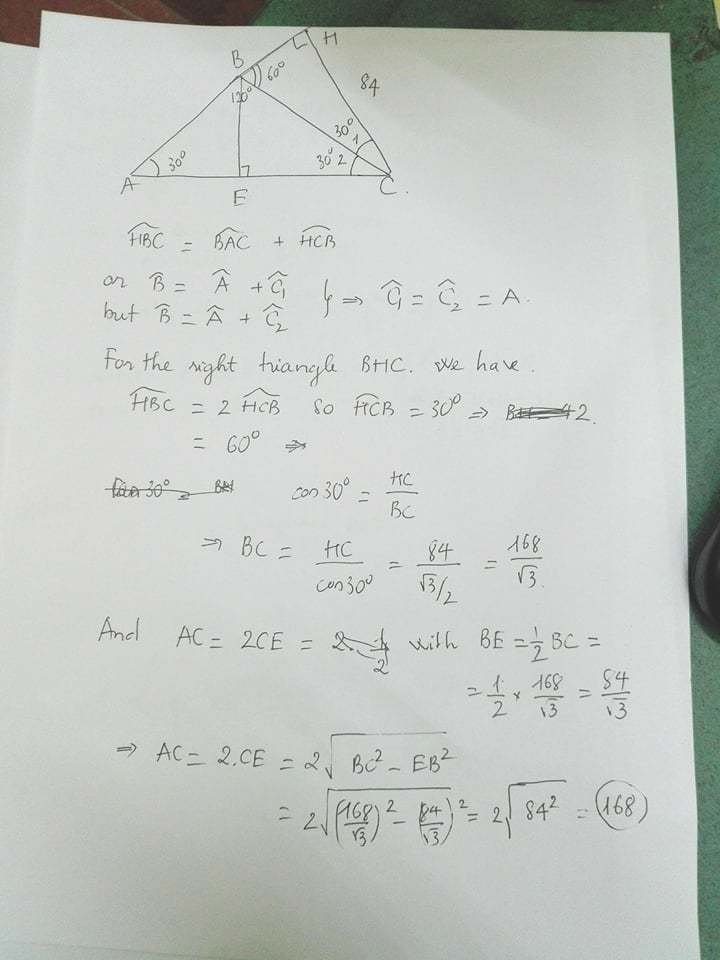 H
B
60°
120°
84
30° 1
30° 2
30°
A
E
C.
HBC = BAC + HCB
or B̂ = Â + Ĉ₁
but B̂ = Â + Ĉ₂ } ⇒ Ĉ₁ = Ĉ₂ = A.
For the right triangle BHC. We have.
HBC = 2 HCB so HCB = 30° ⇒ BH = 42.
= 60° ⇒
cos 30° = HC/BC
⇒ BC = HC/cos30° = 84/(√3/2) = 168/√3.
And AC = 2CE = 2. 1/2 with BE = 1/2 BC =
= 1/2 × 168/√3 = 84/√3
⇒ AC = 2.CE = 2√(BC² - EB²)
= 2√((168/√3)² - (84/√3)²) = 2√(84²) = 168